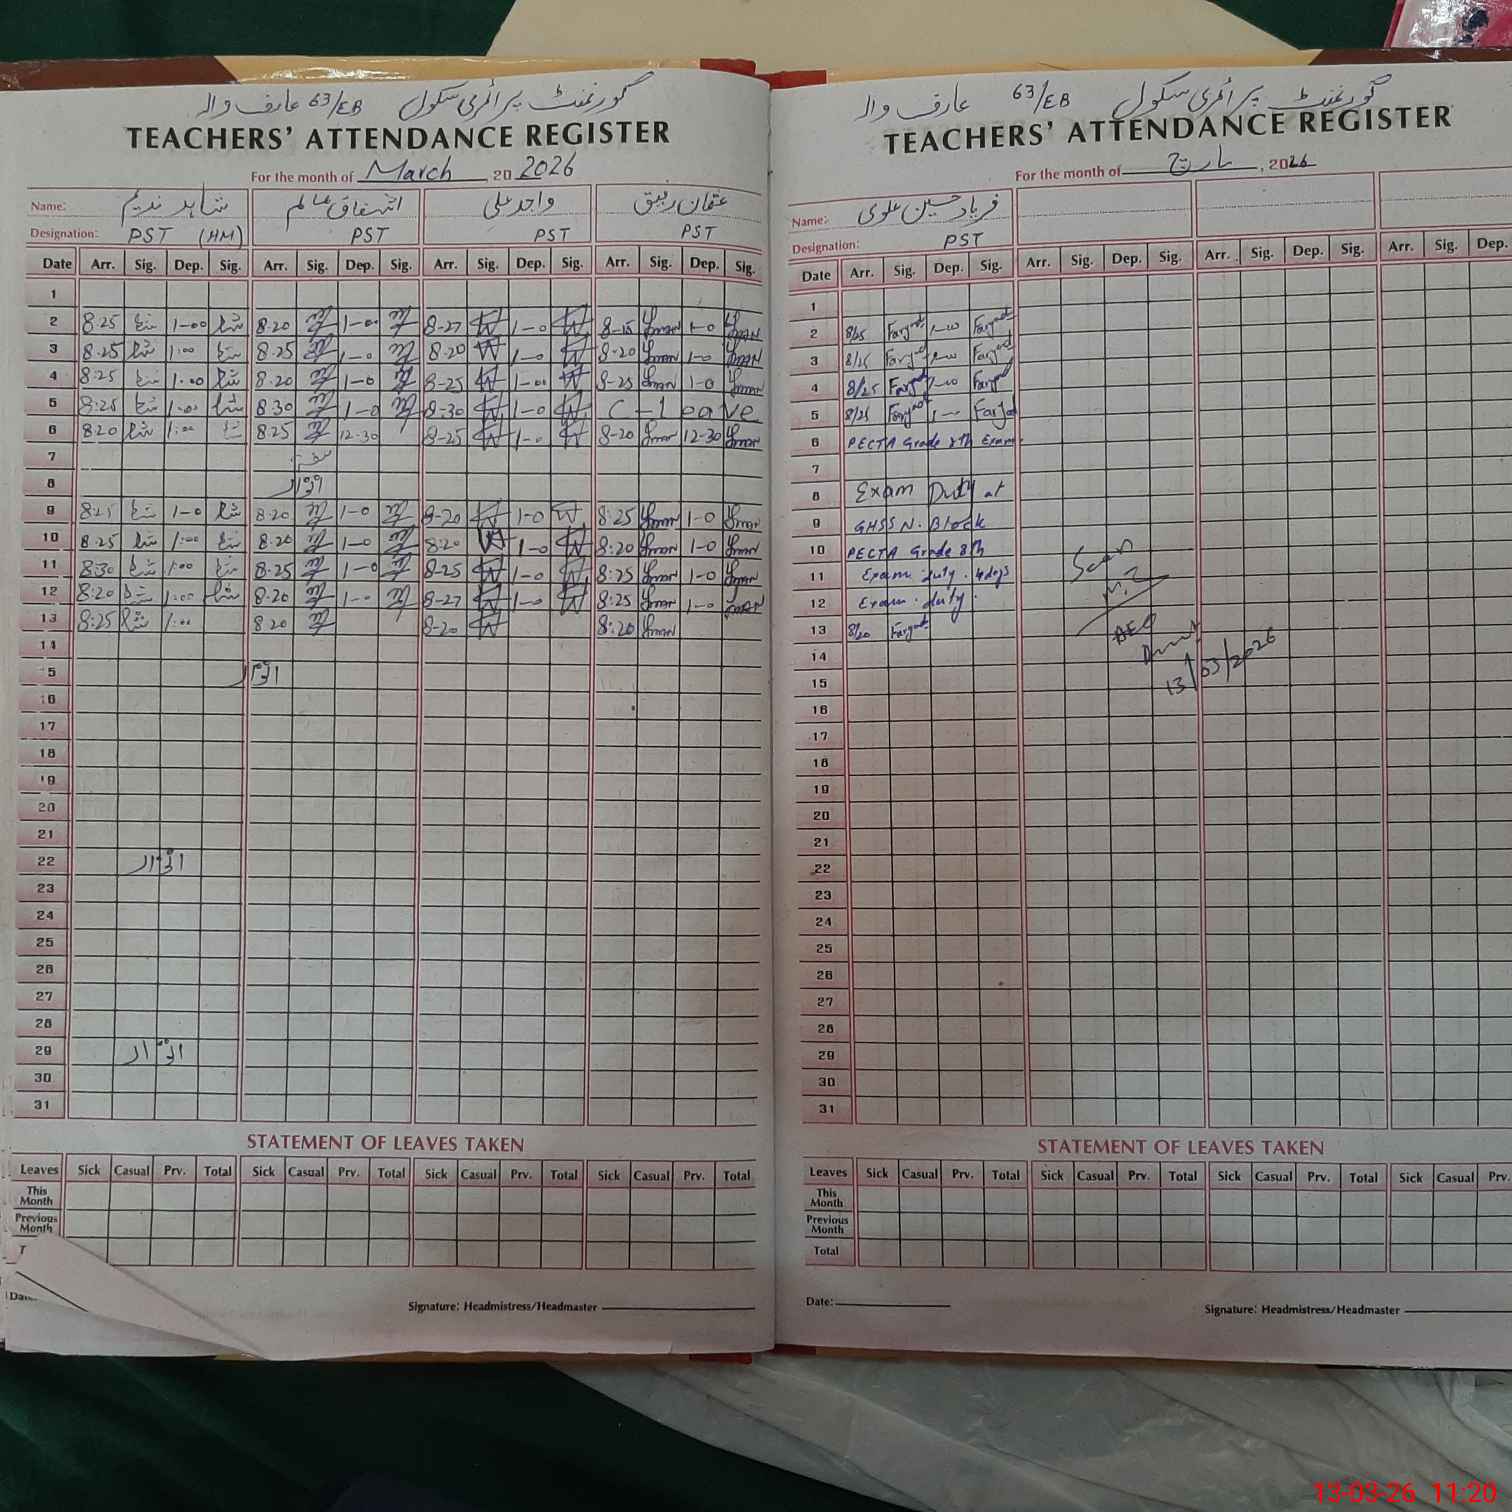 گورنمنٹ پرائمری سکول 63/EB عارف والہ
TEACHERS' ATTENDANCE REGISTER
For the month of March, 2026
Name: شاہد ندیم اشفاق عالم واجد علی عثمان رفیق
Designation: PST (HM) PST PST PST
Date Arr. Sig. Dep. Sig. Arr. Sig. Dep. Sig. Arr. Sig. Dep. Sig. Arr. Sig. Dep. Sig.
1
2 8:25 1-00 8-20 1-00 8-27 1-0 8-15 1-0
3 8:25 1:00 8-25 1-0 8-20 1-0 8-20 1-0
4 8:25 1:00 8-20 1-0 8-25 1-00 8-25 1-0
5 8:25 1:00 8:30 1-0 8-30 1-0 C-leave
6 8:20 1:00 8:25 12-30 8-25 1-0 8-20 12-30
7 ہفتہ
8 اتوار
9 8:25 1-0 8-20 1-0 8-20 1-0 8:25 1-0
10 8:25 1:00 8-20 1-0 8:20 1-0 8:20 1-0
11 8:30 1:00 8-25 1-0 8-25 1-0 8:25 1-0
12 8:20 1:00 8-20 1-0 8-27 1-0 8:25 1-0
13 8:25 1:00 8-20 8-20 8:20
14
15 اتوار
16
17
18
19
20
21
22 اتوار
23
24
25
26
27
28
29 اتوار
30
31
STATEMENT OF LEAVES TAKEN
Leaves Sick Casual Prv. Total Sick Casual Prv. Total Sick Casual Prv. Total Sick Casual Prv. Total
This Month
Previous Month
Signature: Headmistress/Headmaster
گورنمنٹ پرائمری سکول 63/EB عارف والہ
TEACHERS' ATTENDANCE REGISTER
For the month of مارچ, 2026
Name: فریاد حسین علوی
Designation: PST
Date Arr. Sig. Dep. Sig. Arr. Sig. Dep. Sig. Arr. Sig. Dep. Sig. Arr. Sig. Dep.
1
2 8/25
3 8/25
4 8/25
5 8/25
6 PECTA Grade 8th Exam
7
8 Exam Duty at
9 GHSS N. Block
10 PECTA Grade 8th
11 Exam duty. 4days
12 Exam. duty.
13 8/20
Seen
AEO
13/03/2026
14
15
16
17
18
19
20
21
22
23
24
25
26
27
28
29
30
31
STATEMENT OF LEAVES TAKEN
Leaves Sick Casual Prv. Total Sick Casual Prv. Total Sick Casual Prv. Total Sick Casual Prv.
This Month
Previous Month
Total
Date:
Signature: Headmistress/Headmaster
13-03-26 11:20